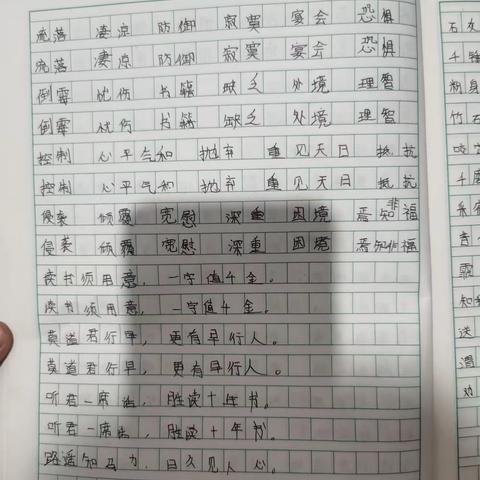 流落 凄凉 防御 寂寞 宴会 恐惧
流落 凄凉 防御 寂寞 宴会 恐惧
倒霉 忧伤 书籍 缺乏 处境 理智
倒霉 忧伤 书籍 缺乏 处境 理智
控制 心平气和 抛弃 重见天日 抵抗
控制 心平气和 抛弃 重见天日 抵抗
侵袭 倾覆 宽慰 深重 困境 焉知非福
侵袭 倾覆 宽慰 深重 困境 焉知非福
读书须用意，一字值千金。
读书须用意，一字值千金。
莫道君行早，更有早行人。
莫道君行早，更有早行人。
听君一席话，胜读十年书。
听君一席话，胜读十年书。
路遥知马力，日久见人心。
石
千锤
粉身
竹石
咬定
千磨